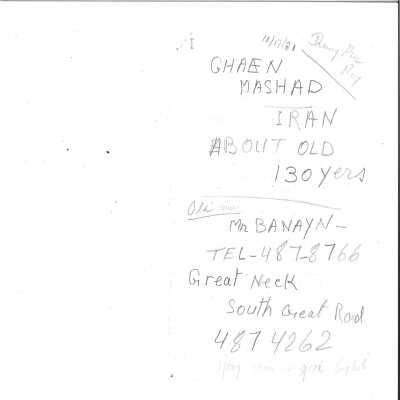 I
10/17/81
GHAEN
MASHAD
IRAN
ABOUT OLD
130 Yers
Mr BANAYN-
TEL-487-8766
Great Neck
South Great Road
487 4262